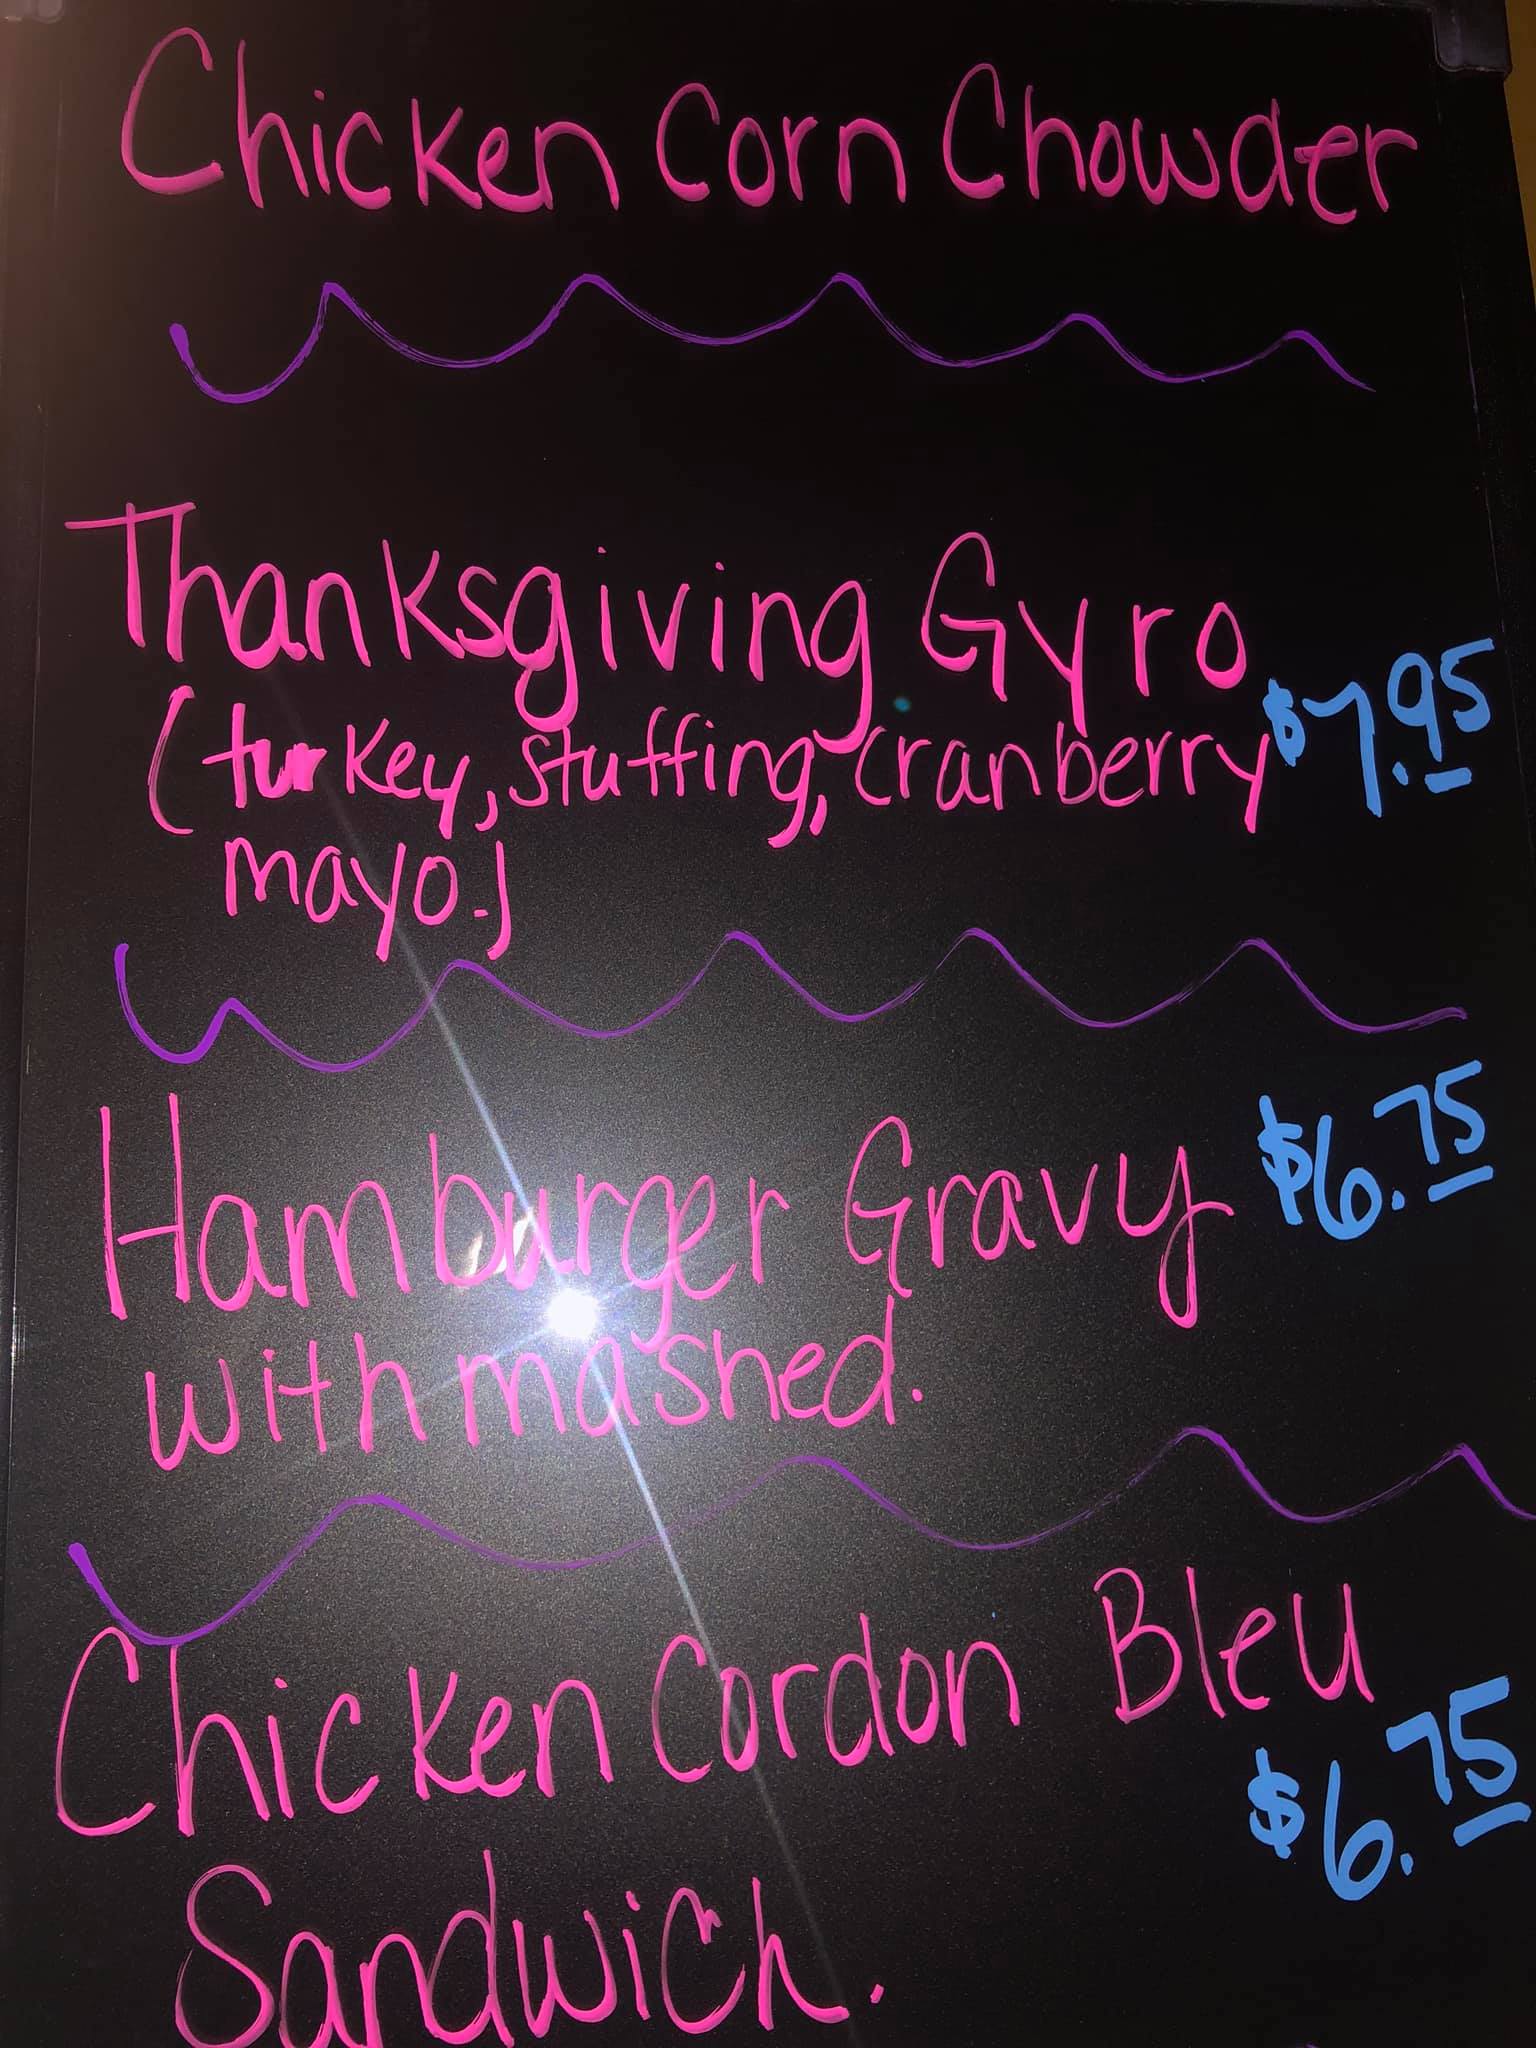 Chicken Corn Chowder
Thanksgiving Gyro
(turkey, stuffing, cranberry $7.95
mayo.)
Hamburger Gravy $6.75
with mashed.
Chicken Cordon Bleu
$6.75
Sandwich.